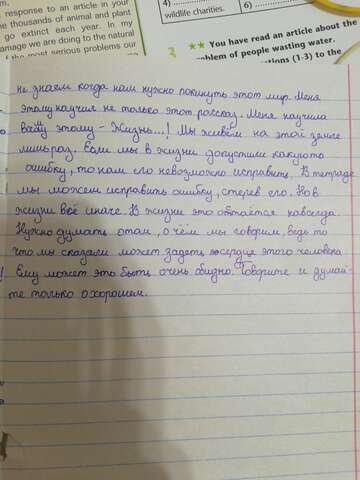 response to an article in your
the thousands of animal and plant
go extinct each year. In my
damage we are doing to the natural
of the most serious problems our
4)
wildlife charities.
6)
3 ★★ You have read an article about the
problem of people wasting water.
(1-3) to the
не знаем когда нам нужно покинуть этот мир. Меня
этому научил не только этот рассказ. Меня научила
этому – Жизнь...! Мы живём на этой земле
лишь раз. Если мы в жизни допустили какую-то
ошибку, то нам его невозможно исправить. В тетраде
мы можем исправить ошибку, стерев его. Но в
жизни всё иначе. В жизни это остаётся навсегда.
Нужно думать о том, о чём мы говорим, ведь то
что мы сказали может задеть сердце этого человека
! Ему может это быть очень обидно. Говорите и думай-
те только о хорошем.